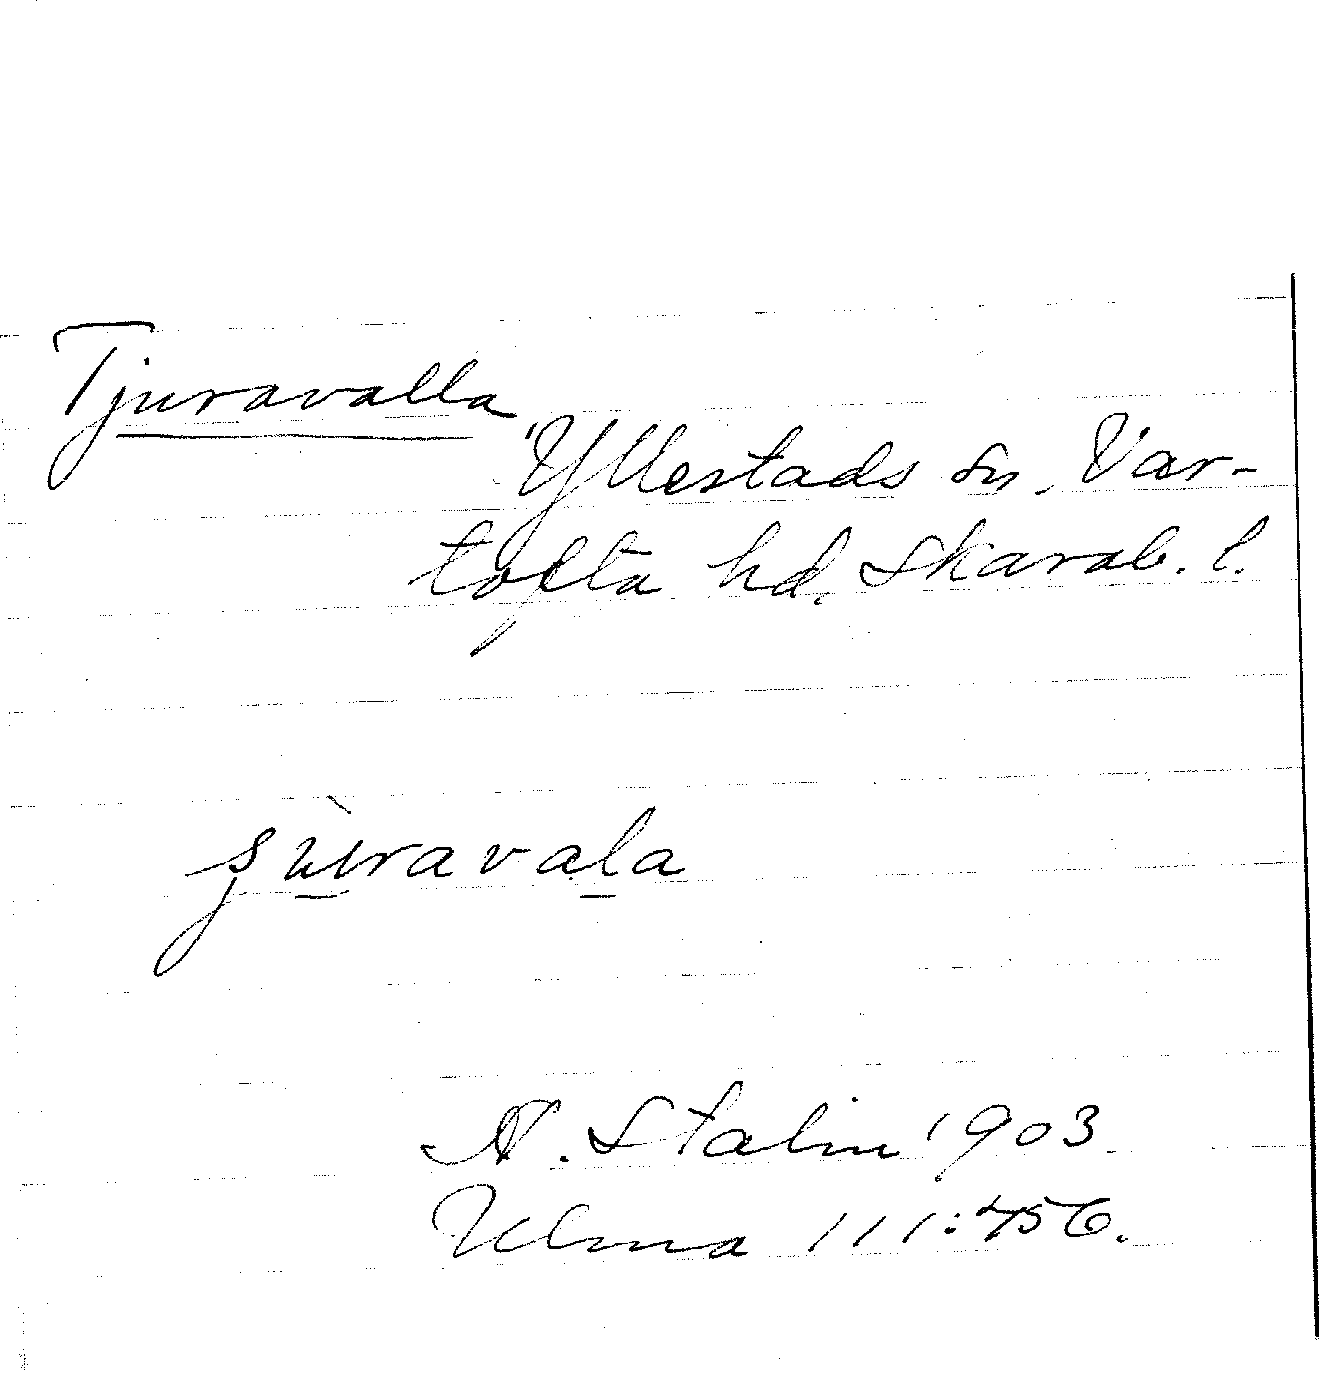 Tjuravalla
Yllestads sn, Var-
tofta hd. Skarab. l.
şùravala
N. Stalin 1903
Ulma 111:456.